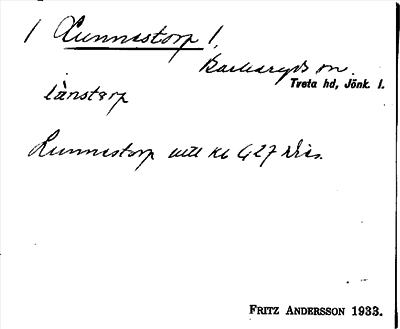 Lunnastorp
Barkeryds sn.
Tveta hd, Jönk. l.
länstɛrp
Lunnastorp utt kl G 27
FRITZ ANDERSSON 1933.